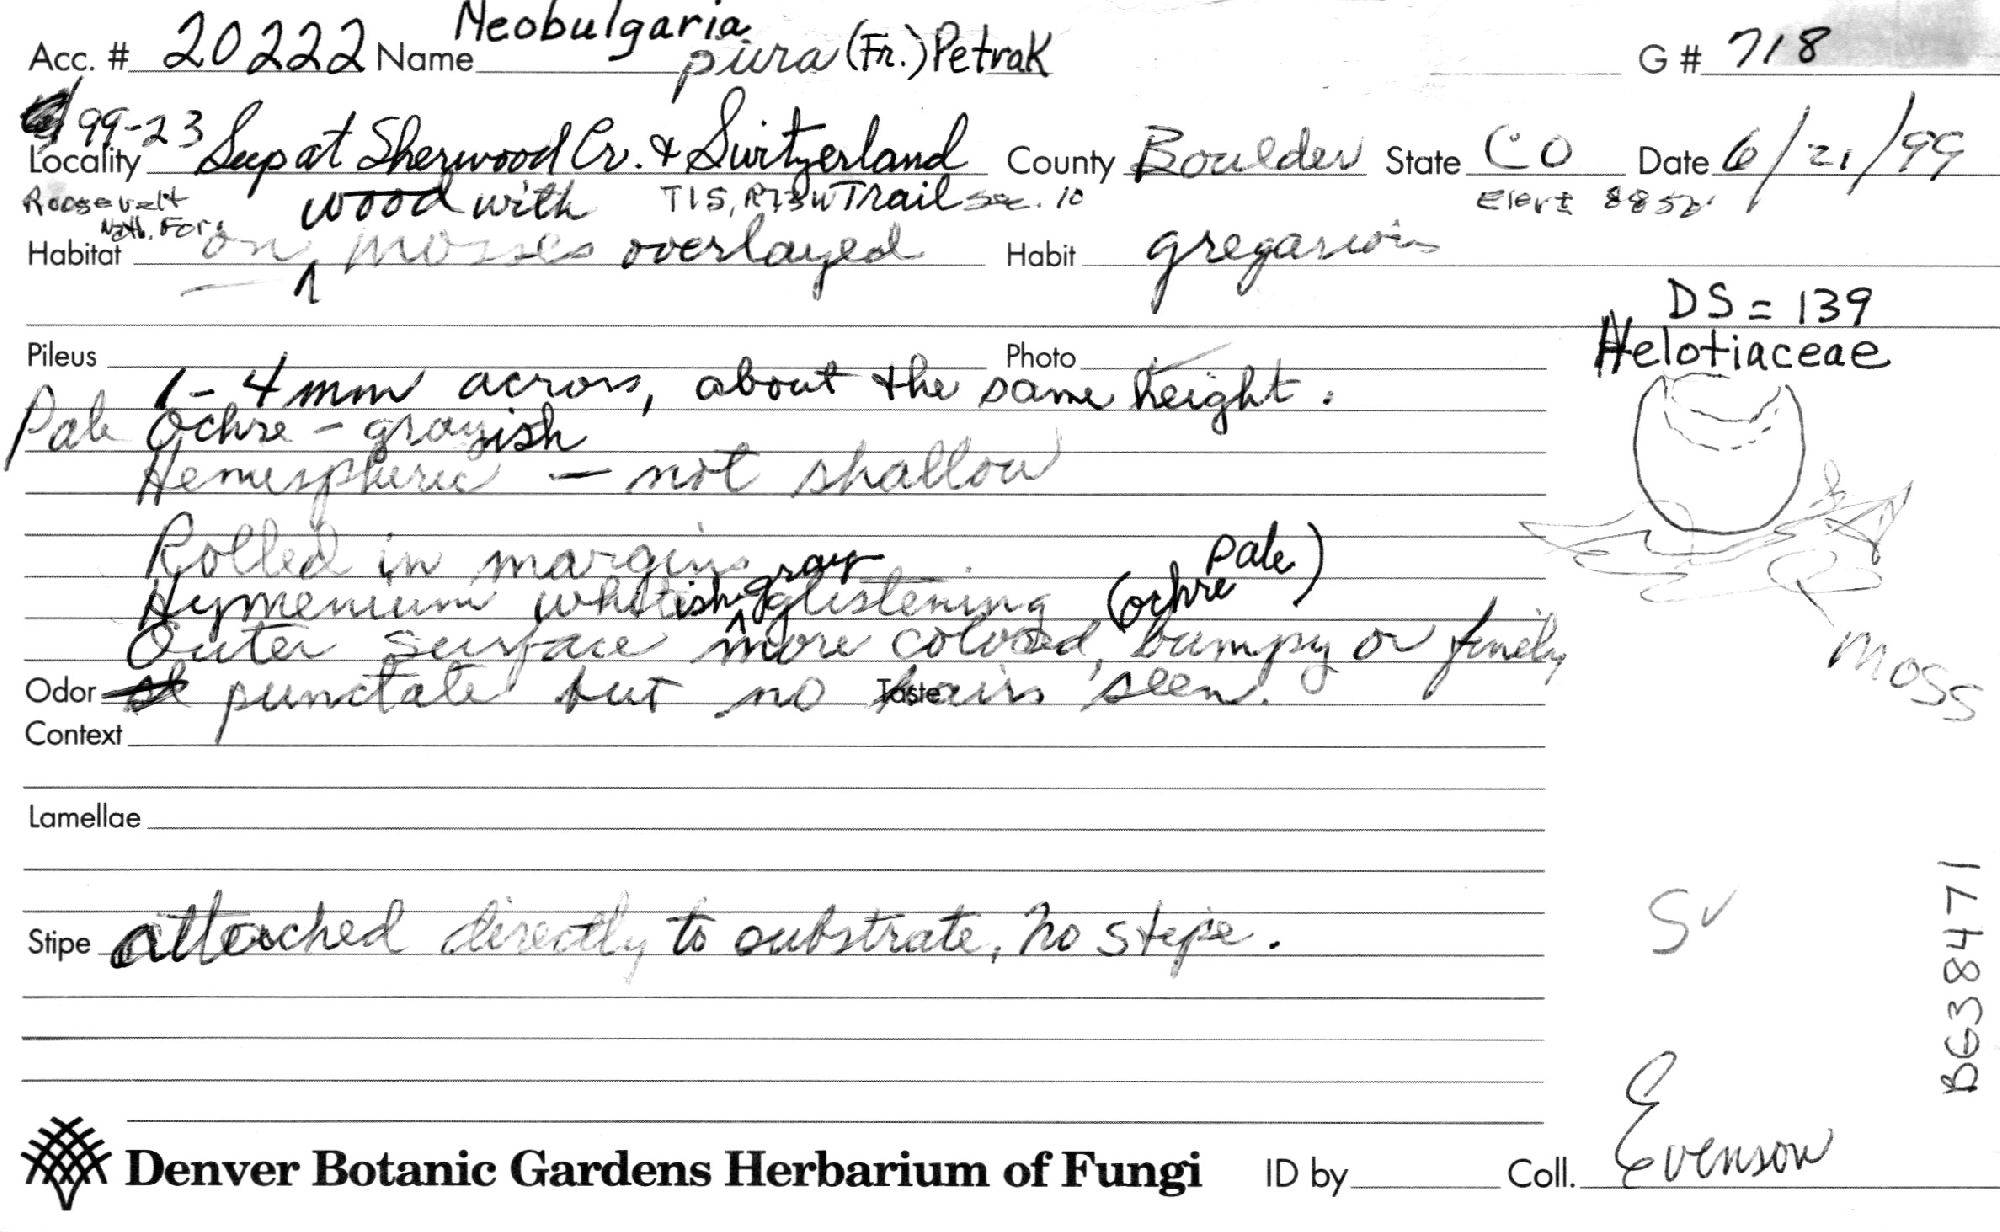 Neobulgaria
Acc. # 20222 Name pura (Fr.) Petrak G # 718
99-23
Locality Seep at Sherwood Cr. & Switzerland County Boulder State CO Date 6/21/99
Roosevelt wood with T1S, R73W Trail Sec. 10 Elev:
Natl. For.
Habitat on mosses overlayed Habit gregarious
DS = 139
Pileus Photo Helotiaceae
1-4 mm across, about the same height.
Pale Ochre - grayish
Hemispheric - not shallow
Rolled in margins gray pale)
Hymenium whitish glistening (ochre
Outer surface more colored, bumpy or finely
Moss
Odor punctate but no Taste hairs seen.
Context
Lamellae
Stipe attached directly to substrate, no stipe.
SV
B638471
Denver Botanic Gardens Herbarium of Fungi ID by Coll. Evenson